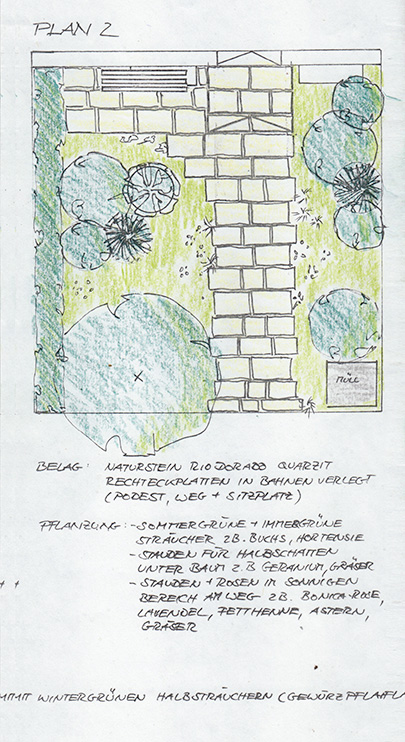 PLAN 2
MÜLL
BELAG: NATURSTEIN RIO DORADO QUARZIT
RECHTECKPLATTEN IN BAHNEN VERLEGT
(PODEST, WEG + SITZPLATZ)
PFLANZUNG: - SOMMERGRÜNE + IMMERGRÜNE
STRÄUCHER ZB. BUCHS, HORTENSIE
- STAUDEN FÜR HALBSCHATTEN
UNTER BAUM Z.B GERANIUM, GRÄSER
- STAUDEN + ROSEN IM SONNIGEN
+ +
BEREICH AM WEG ZB. BONICA-ROSE,
LAVENDEL, FETTHENNE, ASTERN,
GRÄSER
WINTERGRÜNEN HALBSTRÄUCHERN